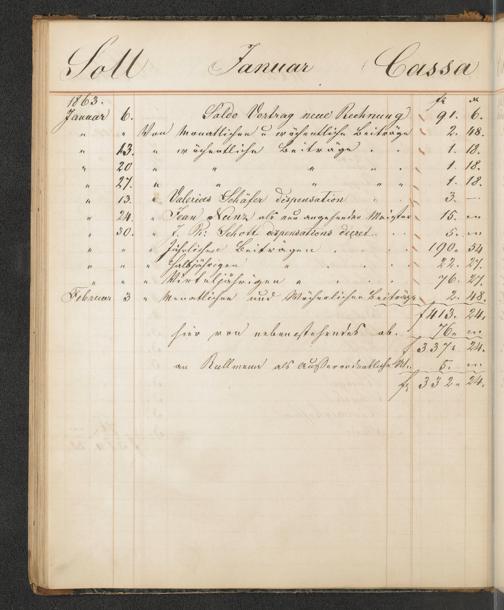 Soll Januar Cassa
1863. fr x
Januar 6. Saldo Vortrag neue Rechnung 91. 6.
" " Von Monatlichen u wöchentliche Beiträge 2. 48.
" 13. " wöchentliche Beiträge 1. 18.
" 20 " " " 1. 18.
" 27. " " " 1. 18.
" 13. " Valerius Schäfer dispensation 3. —
" 24. " Jean als neu angehender Meister 15. —
" 30. " J. Ph: Schott dispensations decret 5. —
" " " Jährlichen Beiträgen 190. 54
" " " Halbjährigen " 22. 27.
" " " Vierteljährigen " 76. 27.
Februar 3 " Monatlichen und Wöchenlichen Beiträge 2. 48.
f 413. 24.
hier von nebenstehendes ab. 76. —
f 337. 24.
an Kullmann als Außerordentliche 5. —
f 332. 24.